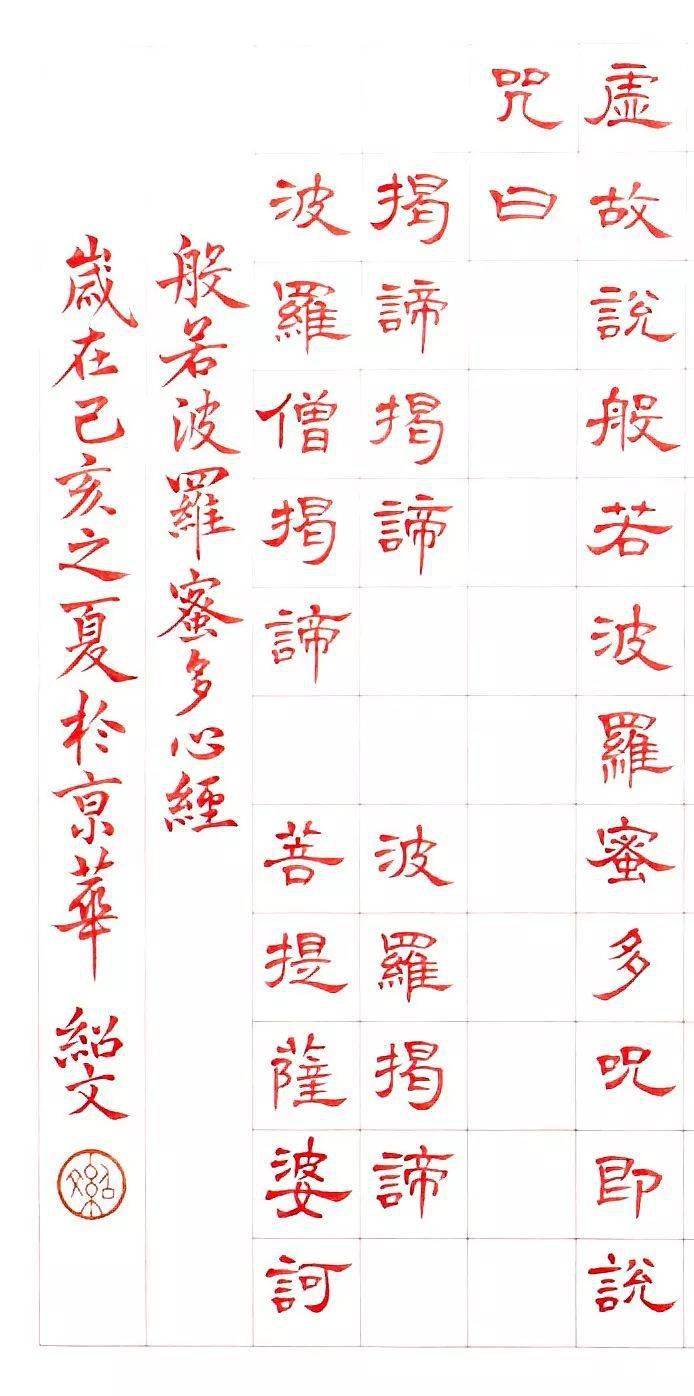 虛故說般若波羅蜜多呪即說
咒曰
揭諦揭諦 波羅揭諦
波羅僧揭諦 菩提薩婆訶
般若波羅蜜多心經
歲在己亥之夏於京華 紹文
紹文